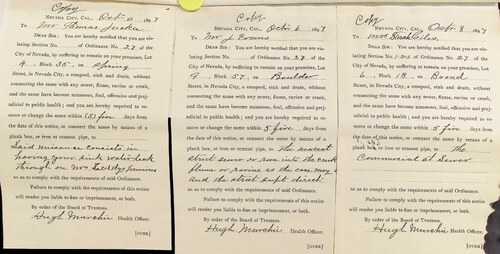 NEVADA CITY, CAL., Octr 6 1897
To Mr Thomas Tucker
DEAR SIR: You are hereby notified that you are vio-
lating Section No. of Ordinance No. 27. of the
City of Nevada, by suffering to remain on your premises, Lot
4 Block 35 on Spring
Street, in Nevada City, a cesspool, sink and drain, without
connecting the same with any sewer, flume, ravine or creek,
and the same have become numerous, foul, offensive and prej-
udicial to public health; and you are hereby required to re-
move or change the same within (5) five days from
the date of this notice, or connect the same by means of a
plank box, or iron or cement pipe, to
Said nuisance consists in
having your sink water leak
through on Mr premises
so as to comply with the requirements of said Ordinance.
Failure to comply with the requirements of this notice
will render you liable to fine or imprisonment, or both.
By order of the Board of Trustees.
Hugh Murchie Health Officer.
[OVER]
Copy
NEVADA CITY, CAL., Octr 6 1897
To Mr J.
DEAR SIR: You are hereby notified that you are vio-
lating Section No. of Ordinance No. 27. of the
City of Nevada, by suffering to remain on your premises, Lot
9 Block 57 on Boulder
Street, in Nevada City, a cesspool, sink and drain, without
connecting the same with any sewer, flume, ravine or creek,
and the same have become numerous, foul, offensive and prej-
udicial to public health; and you are hereby required to re-
move or change the same within 5 five days from
the date of this notice, or connect the same by means of a
plank box, or iron or cement pipe, to The nearest
street sewer or run into the creek
flume or ravine as the case may
and the street supt direct.
so as to comply with the requirements of said Ordinance.
Failure to comply with the requirements of this notice
will render you liable to fine or imprisonment, or both.
By order of the Board of Trustees.
Hugh Murchie Health Officer.
[OVER]
Copy
NEVADA CITY, CAL., Octr 8 1897
To Mrs Sarah
DEAR SIR: You are hereby notified that you are vio-
lating Section No. of Ordinance No. 27 of the
City of Nevada, by suffering to remain on your premises, Lot
6 Block 13 on Broad
Street, in Nevada City, a cesspool, sink and drain, without
connecting the same with any sewer, flume, ravine or creek,
and the same have become numerous, foul, offensive and prej-
udicial to public health; and you are hereby required to re-
move or change the same within 5 five days from
the date of this notice, or connect the same by means of a
plank box, or iron or cement pipe, to the
Commercial st Sewer
so as to comply with the requirements of said Ordinance.
Failure to comply with the requirements of this notice
will render you liable to fine or imprisonment, or both.
By order of the Board of Trustees.
Hugh Murchie Health Officer.
[OVER]